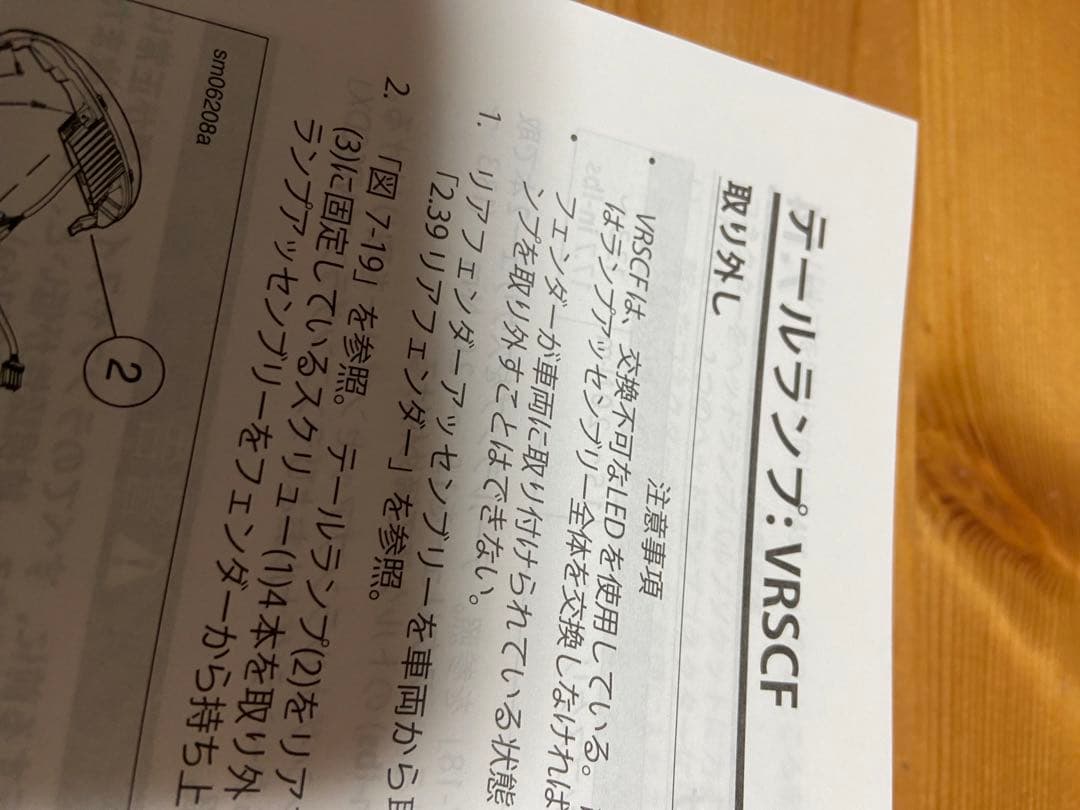 テールランプ: VRSCF
取り外し
注意事項
• VRSCFは、交換不可なLEDを使用している。
はランプアッセンブリー全体を交換しなければ
• フェンダーが車両に取り付けられている状態
ンプを取り外すことはできない。
1. リアフェンダーアッセンブリーを車両から
「2.39 リアフェンダー」を参照。
2. 「図 7-19」を参照。 テールランプ(2)をリア
(3)に固定しているスクリュー(1)4本を取り外
ランプアッセンブリーをフェンダーから持ち上
sm06208a
2